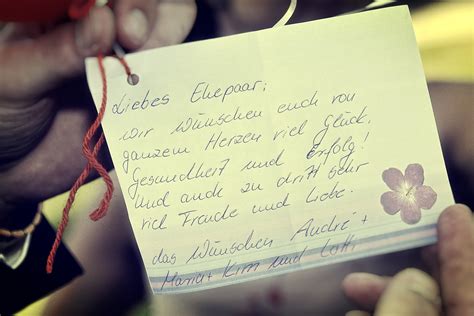 Liebes Ehepaar;
wir wünschen euch von
ganzem Herzen viel Glück,
Gesundheit und Erfolg!
und auch zu dritt sehr
viel Freude und Liebe.
das wünschen André +
Maria + Kim und Lotti